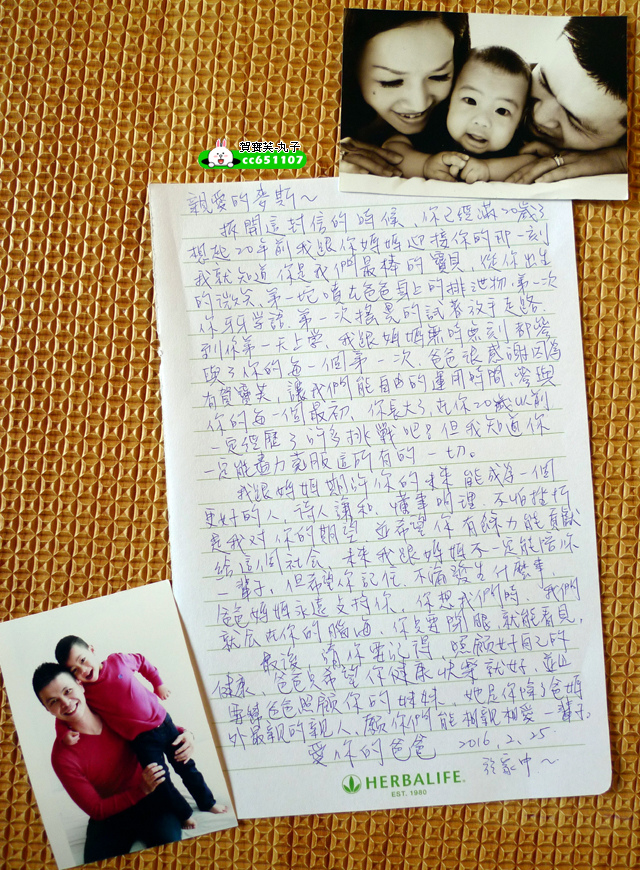 賀寶芙.丸子
cc651107
親愛的麥斯~
拆開這封信的時候、你已經滿20歲了
想起20年前我跟你媽媽迎接你的那一刻
我就知道你是我們最棒的寶貝、從你出生
的微笑、第一坨噴在爸爸身上的排泄物、第一次
你牙牙學語、第一次搖晃的試著放手走路、
到你第一天上學、我跟媽媽無時無刻都參
與了你的每一個第一次、爸爸很感謝因為
有賀寶芙、讓我們能自由的運用時間、參與
你的每一個最初、你長大了、在你20歲以前
一定經歷了許多挑戰吧?但我知道你
一定能盡力克服這所有的一切。
我跟媽媽期許你的未來能成為一個
更好的人、待人謙和、懂事明理、不怕挫折
是我對你的期望、並希望你有餘力能貢獻
給這個社會、未來我跟媽媽不一定能陪你
一輩子、但希望你記住、不論發生什麼事、
爸爸媽媽永遠支持你、你想我們時、我們
就在你的腦海、你只要閉眼就能看見、
最後、請你要記得、照顧好自己的
健康、爸爸只希望你健康快樂就好、並且
要練爸爸照顧你的妹妹、她是你除了爸媽
外最親的親人、願你們能相親相愛一輩子、
愛你的爸爸 2016.2.25
家中~
HERBALIFE
EST. 1980